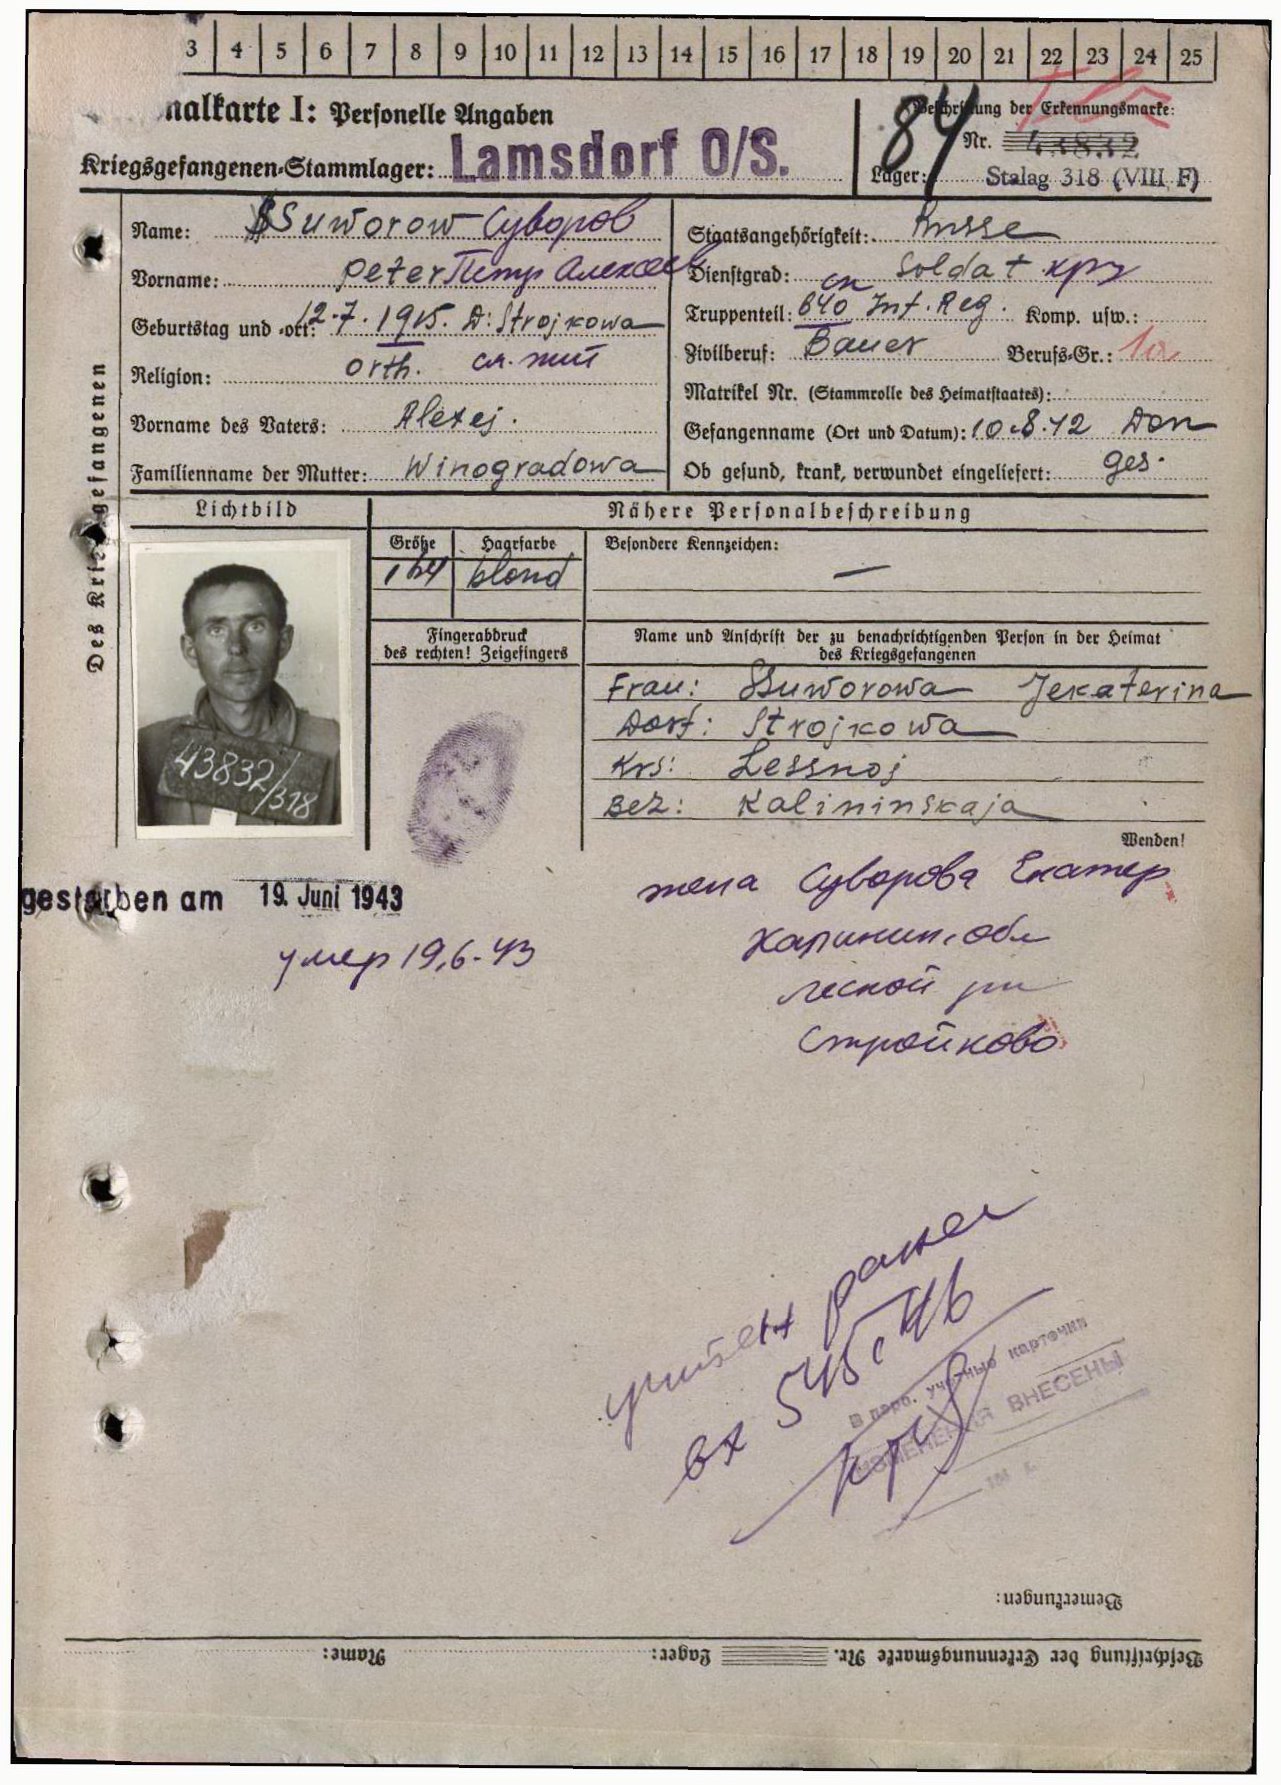 3 4 5 6 7 8 9 10 11 12 13 14 15 16 17 18 19 20 21 22 23 24 25
nalkarte I: Personelle Angaben
Kriegsgefangenen-Stammlager: Lamsdorf O/S.
84
der Erkennungsmarke:
Nr. 43832
Lager: Stalag 318 (VIII F)
Des Kriegsgefangenen
Name: Suworow Суворов
Vorname: Peter Петр Алексеев
Geburtstag und -ort: 12.7.1915. D: Strojkowa
Religion: orth.
Vorname des Vaters: Alexej.
Familienname der Mutter: Winogradowa
Staatsangehörigkeit: Russe
Dienstgrad: Soldat кр
Truppenteil: 640 Inf. Reg. Komp. usw.:
сп
Zivilberuf: Bauer Berufs-Gr.: 1a
Matrikel Nr. (Stammrolle des Heimatstaates):
Gefangenname (Ort und Datum): 10.8.42 Don
Ob gesund, krank, verwundet eingeliefert: ges.
Lichtbild
Nähere Personalbeschreibung
Größe Haarfarbe Besondere Kennzeichen:
164 blond —
Fingerabdruck
des rechten! Zeigefingers
Name und Anschrift der zu benachrichtigenden Person in der Heimat
des Kriegsgefangenen
Frau: Suworowa Jekaterina
Dorf: Strojkowa
Krs: Lessnoj
Bez: Kalininskaja
43832/318
Wenden!
gestorben am 19. Juni 1943
умер 19.6.43
жена Суворова Екатер
Калинин. обл
Лесной рн
Стройково
учтен ранее
вх 545с 46
В перв. учетные карточки
ИЗМЕНЕНИЯ ВНЕСЕНЫ
Bemerkungen:
Name: Lager: Beschriftung der Erkennungsmarke Nr.